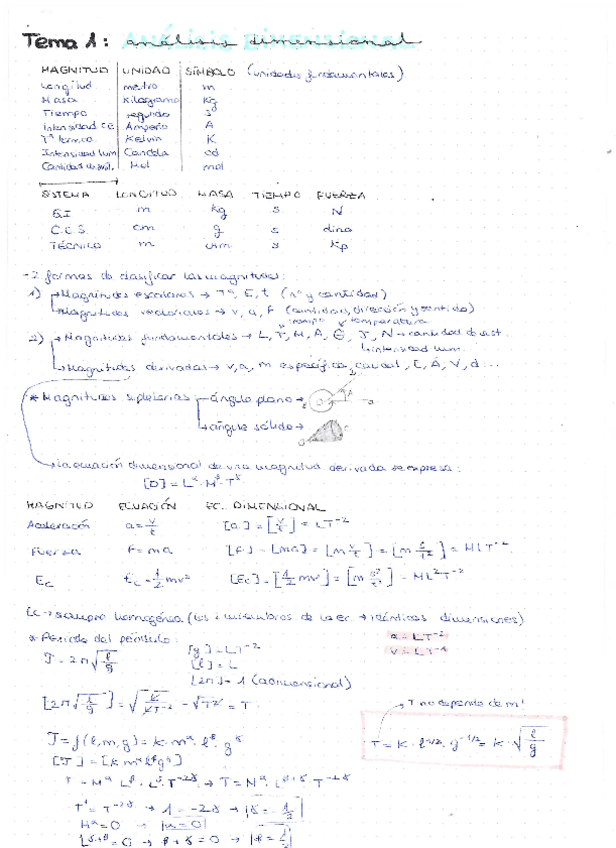 Tema 1: análisis dimensional
MAGNITUD UNIDAD SÍMBOLO (unidades fundamentales)
Longitud metro m
Masa Kilogramo Kg
Tiempo segundo s
Intensidad CE Amperio A
Tª termo Kelvin K
Intensidad lum Candela cd
Cantidad de sust. Mol mol
SISTEMA LONGITUD MASA TIEMPO FUERZA
S.I m kg s N
C.G.S. cm g s dina
TÉCNICO m utm s kp
-2 formas de clasificar las magnitudes:
1) → Magnitudes escalares → Tª, E, t (nº y cantidad)
→ Magnitudes vectoriales → v, a, F (cantidad, dirección y sentido)
tiempo temperatura
2) → Magnitudes fundamentales → L, T, M, A, Θ, J, N → cantidad de sust.
intensidad lum.
→ Magnitudes derivadas → v, a, m específica, caudal, E, A, V, d...
* Magnitudes supletorias → ángulo plano →
→ ángulo sólido →
→ la ecuación dimensional de una magnitud derivada se expresa:
[D] = L^α · M^β · T^γ
MAGNITUD ECUACIÓN EC. DIMENSIONAL
Aceleración a = v/t [a] = [v/t] = LT⁻²
Fuerza F = ma [F] = [ma] = [m v/t] = [m l/t²] = MLT⁻²
Ec Ec = 1/2 mv² [Ec] = [1/2 mv²] = [m l²/t²] = ML²T⁻²
Ec → siempre homogénea (los 2 miembros de la ec. → idénticas dimensiones)
* Periodo del péndulo: [g] = LT⁻² a = LT⁻²
T = 2π√(l/g) [l] = L v = LT⁻¹
[2π] = 1 (adimensional)
[2π√(l/g)] = √(L/LT⁻²) = √T² = T
→ T no depende de m!
T = f(l, m, g) = k · m^α · l^β · g^γ
T = k · l^1/2 · g^-1/2 = k · √(l/g)
[T] = [k m^α l^β g^γ]
T = M^α L^β · L^γ · T^-2γ → T = M^α L^β+γ T^-2γ
T¹ = T^-2γ → 1 = -2γ → γ = -1/2
M^α = 0 → α = 0
L^β+γ = 0 → β + γ = 0 → β = 1/2